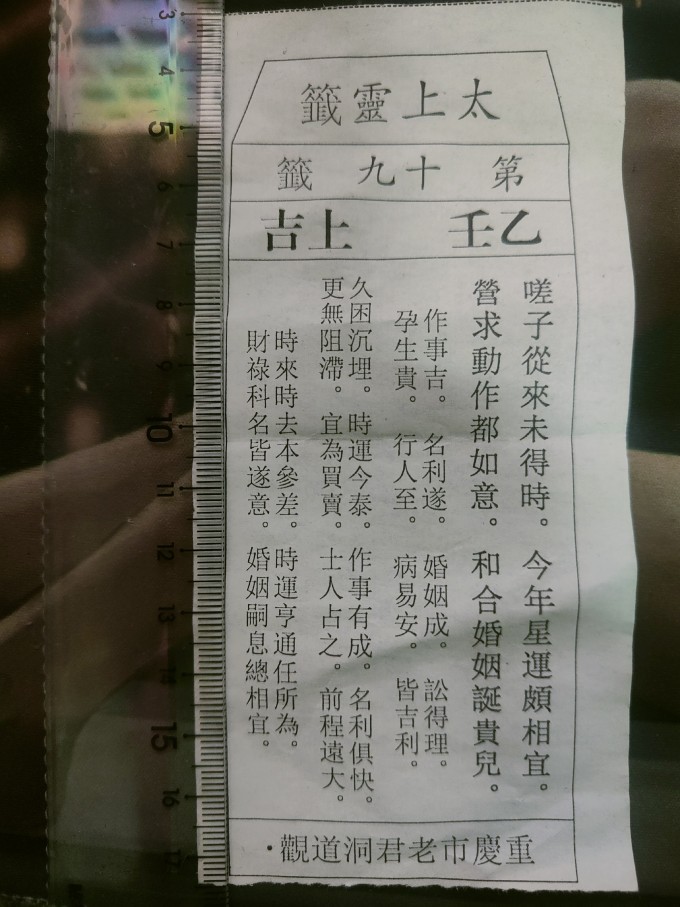 太上靈籤
第十九籤
乙壬 上吉
嗟子從來未得時。今年星運頗相宜。
營求動作都如意。和合婚姻誕貴兒。
作事吉。名利遂。婚姻成。訟得理。
孕生貴。行人至。病易安。皆吉利。
久困沉埋。時運今泰。作事有成。名利俱快。
更無阻滯。宜為買賣。士人占之。前程遠大。
時來時去本參差。時運亨通任所為。
財祿科名皆遂意。婚姻嗣息總相宜。
重慶市老君洞道觀·
3
4
5
6
7
8
9
10
11
12
13
14
15
16
17